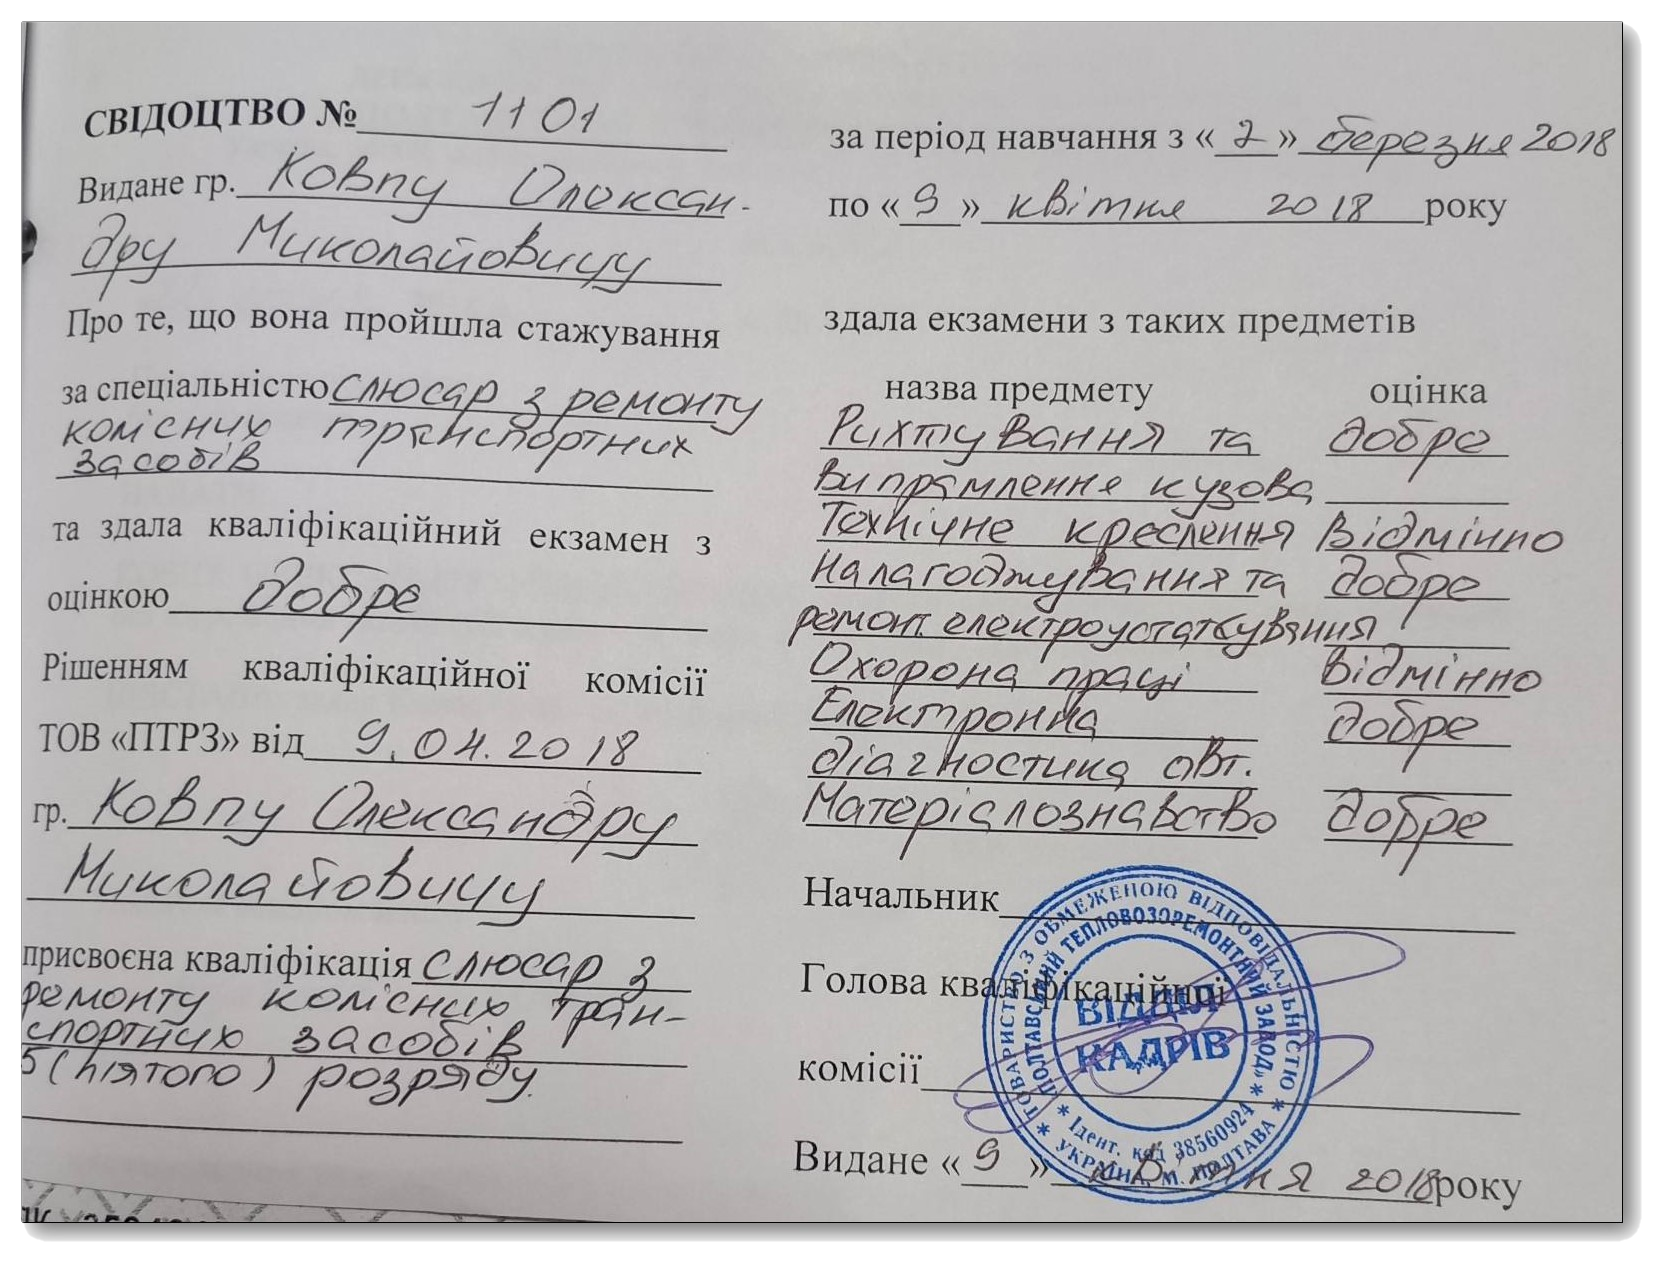 СВІДОЦТВО № 1101
Видане гр. Ковпу Олексан-
дру Миколайовичу
Про те, що вона пройшла стажування
за спеціальністю слюсар з ремонту
комісних транспортних
засобів
та здала кваліфікаційний екзамен з
оцінкою добре
Рішенням кваліфікаційної комісії
ТОВ «ПТРЗ» від 9.04.2018
гр. Ковпу Олександру
Миколайовичу
присвоєна кваліфікація слюсар з
ремонту комісних тран-
спортних засобів
5 (п'ятого) розряду.
за період навчання з «2» березня 2018
по «9» квітня 2018 року
здала екзамени з таких предметів
назва предмету оцінка
Рихтування та добре
випрямлення кузова
Технічне креслення відмінно
Налагоджування та добре
ремонт електроустаткування
Охорона праці відмінно
Електронна добре
діагностика авт.
Матеріалознавство добре
Начальник
Голова кваліфікаційної
комісії
Видане «9» квітня 2018 року
ТОВАРИСТВО З ОБМЕЖЕНОЮ ВІДПОВІДАЛЬНІСТЮ
ПОЛТАВСЬКИЙ ТЕПЛОВОЗОРЕМОНТНИЙ ЗАВОД»
ВІДДІЛ
КАДРІВ
* Ідент. код 38560924 *
* УКРАЇНА, М. ПОЛТАВА *